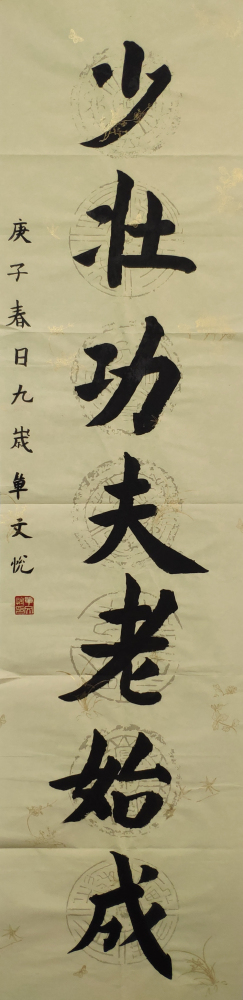 少壮功夫老始成
庚子春日九歲單文悅